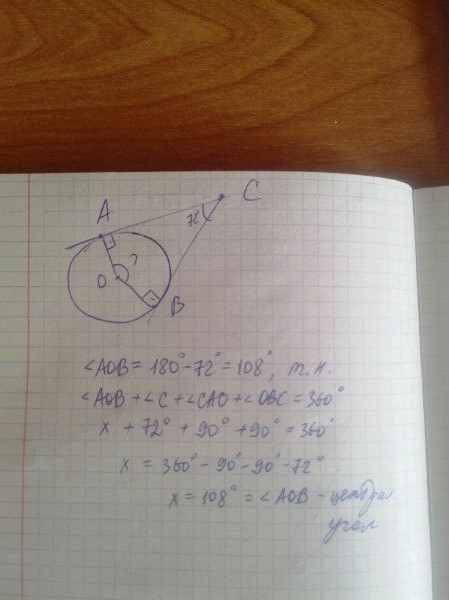 C
A
72°
O ?
B
∠AOB = 180° - 72° = 108°, т.к.
∠AOB + ∠C + ∠CAO + ∠OBC = 360°
x + 72° + 90° + 90° = 360°
x = 360° - 90° - 90° - 72°
x = 108° = ∠AOB - централ.
угол